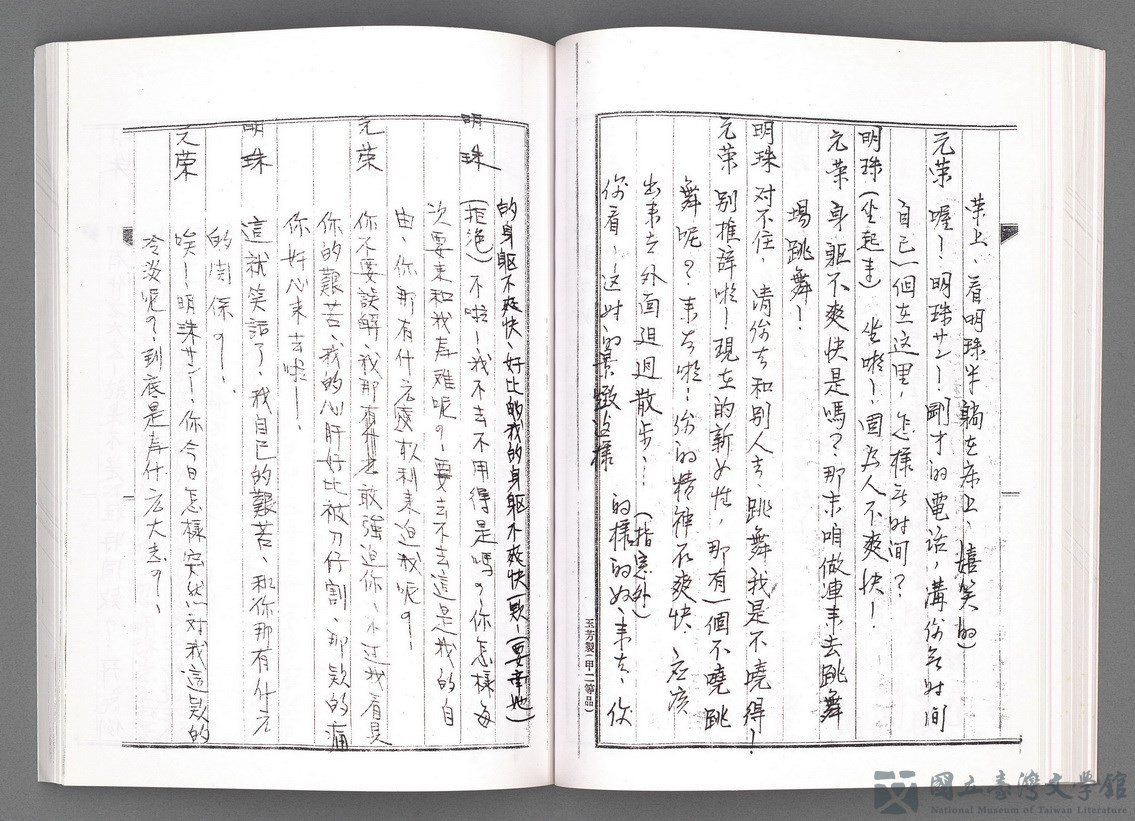 荣上、看明珠半躺在床上、嬉笑的)
元荣 喔!明珠サン!剛才的電话,溝你无时间
自己一個在这里,怎樣无时间?
明珠(坐起来)坐啦!因为人不爽快!
元荣 身軀不爽快是嗎?那末咱做連来去跳舞
場跳舞!
明珠 对不住,請你去和别人去、跳舞我是不嘵得!
元荣 别推辞啦!現在的新女性,那有一個不嘵跳
舞呢?来去啦!你的精神不爽快,应该
出来去外面迫迌散步…(指窓外)
你看、这时的景緻这樣 的樣的、来去、你
玉芳製(甲二等品)
的身軀不爽快、好比的我的身軀不爽快一款!(要牽她)
明珠 (拒绝)不啦!我不去不用得是嗎?你怎樣每
次要来和我為难呢?要去不去這是我的自
由、你那有什么權利来迫我呢?
元荣 你不要誤解、我那有什么敢強迫你、不过我看見
你的艱苦、我的心肝好比被刀仔割、那款的痛
你好心来去啦!
明珠 這就笑話了、我自已的艱苦、和你那有什么
的関係?!
元荣 唉!明珠サン!你今日怎樣突然对我這款的
冷淡呢?到底是為什么大志?
國立臺灣文學館
National Museum of Taiwan Literature